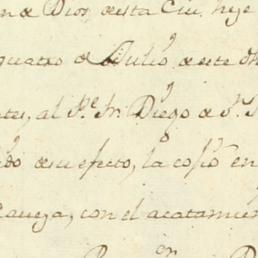 n de Dios, de esta Ciu. hize
quatro de Julio de este
tes, al P.e Fr. Diego de S.n
do de su efecto, la cosio en
aveza, con el acatamien